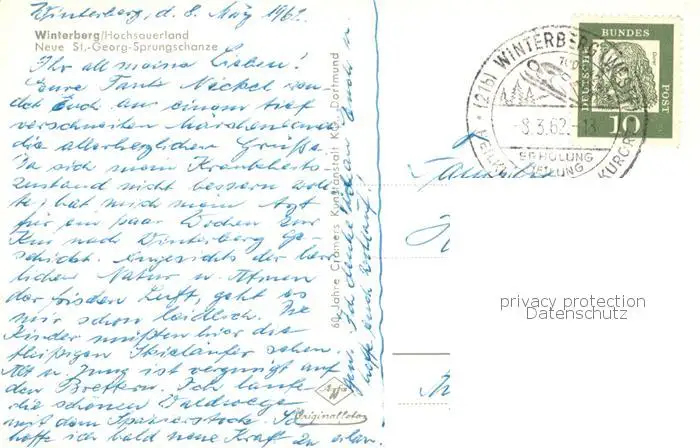 Winterberg, d. 8. März 1962.
Winterberg/Hochsauerland
Neue St.-Georg-Sprungschanze
Ihr all meine Lieben!
Eure Tante Nickel sen-
det Euch aus einem tief
verschneiten Märchenland
die allerherzlichen Grüße.
Da sich mein Krankheits-
zustand nicht bessern woll-
te, hat mich mein Arzt
für ein paar Wochen zur
Kur nach Winterberg ge-
schickt. Angesichts der herr-
lichen Natur u. Atmen
der frischen Luft, geht es
mir schon leidlich. Die
Kinder müßten hier die
fleißigen Skiläufer sehen.
Alt u. Jung ist vergnügt auf
den Brettern. Ich laufe
die schönen Waldwege
mit dem Spazierstock. So
hoffe ich bald neue Kraft zu
Ich denke an Euch u.
hoffe auch
60 Jahre Cramers Kunstanstalt KG, Dortmund
Agfa
Originalfoto
(21b) WINTERBERG (WESTF)
-8.3.62.-18
ERHOLUNG
HEILUNG
KURORT
DEUTSCHE
BUNDES
POST
10
Familie
privacy protection
Datenschutz